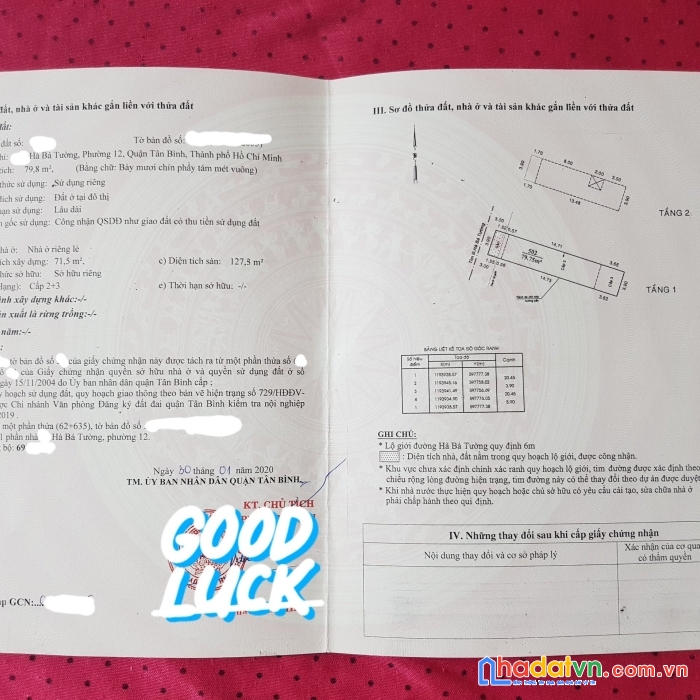 đất, nhà ở và tài sản khác gắn liền với thửa đất
đất:
đất số:
Tờ bản đồ số:
hỉ: Hà Bá Tường, Phường 12, Quận Tân Bình, Thành phố Hồ Chí Minh
tích: 79,8 m², (Bằng chữ: Bảy mươi chín phẩy tám mét vuông)
thức sử dụng: Sử dụng riêng
đích sử dụng: Đất ở tại đô thị
hạn sử dụng: Lâu dài
n gốc sử dụng: Công nhận QSDĐ như giao đất có thu tiền sử dụng đất
nhà ở: Nhà ở riêng lẻ
ích xây dựng: 71,5 m². c) Diện tích sàn: 127,5 m²
hức sở hữu: Sở hữu riêng
Hạng): Cấp 2+3 e) Thời hạn sở hữu: -/-
ình xây dựng khác:-/-
ản xuất là rừng trồng:-/-
năm:-/-
tờ bản đồ số của giấy chứng nhận này được tách ra từ một phần thửa số
của Giấy chứng nhận quyền sở hữu nhà ở và quyền sử dụng đất ở số
gày 15/11/2004 do Ủy ban nhân dân quận Tân Bình cấp ;
y hoạch sử dụng đất, quy hoạch giao thông theo bản vẽ hiện trạng số 729/HĐĐV-
ợc Chi nhánh Văn phòng Đăng ký đất đai quận Tân Bình kiểm tra nội nghiệp
2019 .
một phần thửa (62+635), tờ bản đồ số
1 phần nhà Hà Bá Tường, phường 12.
bộ: 69
Ngày 30 tháng 01 năm 2020
TM. ỦY BAN NHÂN DÂN QUẬN TÂN BÌNH
KT. CHỦ TỊCH
GOOD
LUCK
ấp GCN:
III. Sơ đồ thửa đất, nhà ở và tài sản khác gắn liền với thửa đất
1.70
8.00
2.00
3.60
13.48
3.90
TẦNG 2
Tim Đ.Hà Bá Tường
14.71
3.68
503
79.75m²
14.75
3.62
3.90
TẦNG 1
BẢNG LIỆT KÊ TỌA ĐỘ GÓC RANH
Số hiệu điểm
Tọa độ
X(m)
Y(m)
Cạnh
1
2
3
4
1
20.45
3.90
20.45
GHI CHÚ:
* Lộ giới đường Hà Bá Tường quy định 6m
: Diện tích nhà, đất nằm trong quy hoạch lộ giới, được công nhận.
* Khu vực chưa xác định chính xác ranh quy hoạch lộ giới, tim đường được xác định theo
chiều rộng lòng đường hiện trạng, tim đường này có thể thay đổi theo dự án được duyệt
* Khi nhà nước thực hiện quy hoạch hoặc chủ sở hữu có yêu cầu cải tạo, sửa chữa nhà ở
phải chấp hành theo qui định.
IV. Những thay đổi sau khi cấp giấy chứng nhận
Nội dung thay đổi và cơ sở pháp lý
Xác nhận của cơ qua
có thẩm quyền
nhadatvn.com.vn